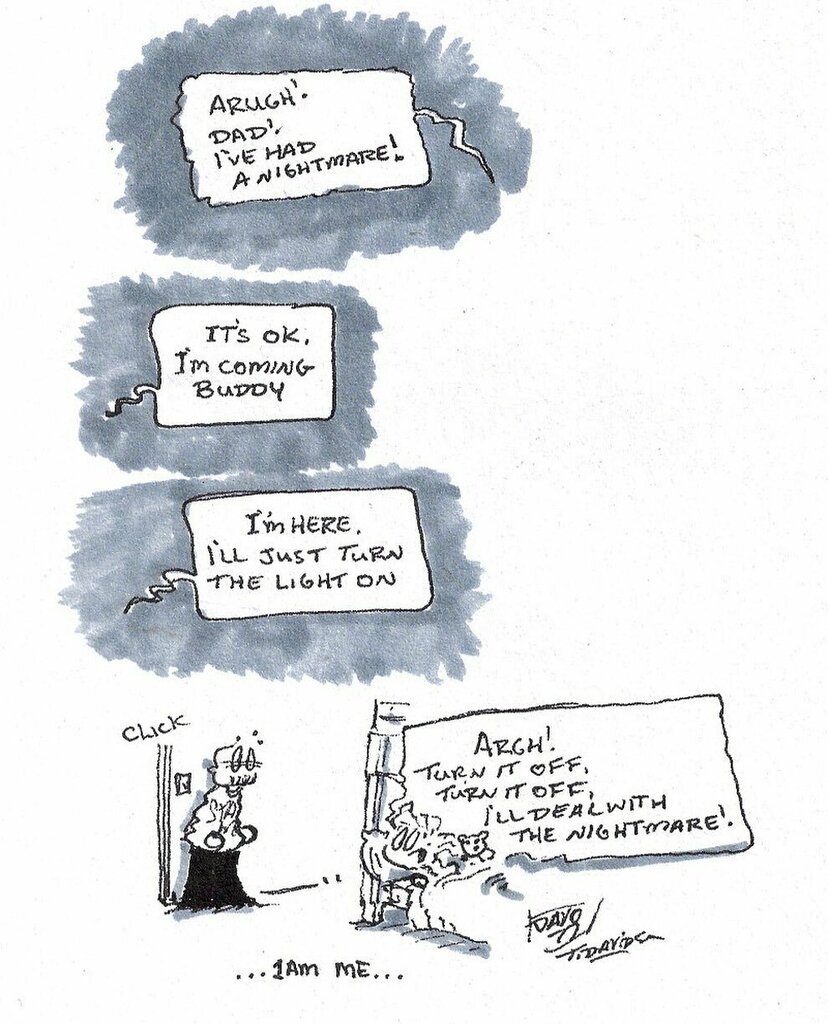 ARUGH!
DAD!
I'VE HAD
A NIGHTMARE!
IT'S OK,
I'M COMING
BUDDY
I'M HERE,
I'LL JUST TURN
THE LIGHT ON
CLICK
ARGH!
TURN IT OFF,
TURN IT OFF,
I'LL DEAL WITH
THE NIGHTMARE!
T.DAVIDSON
...I AM ME...